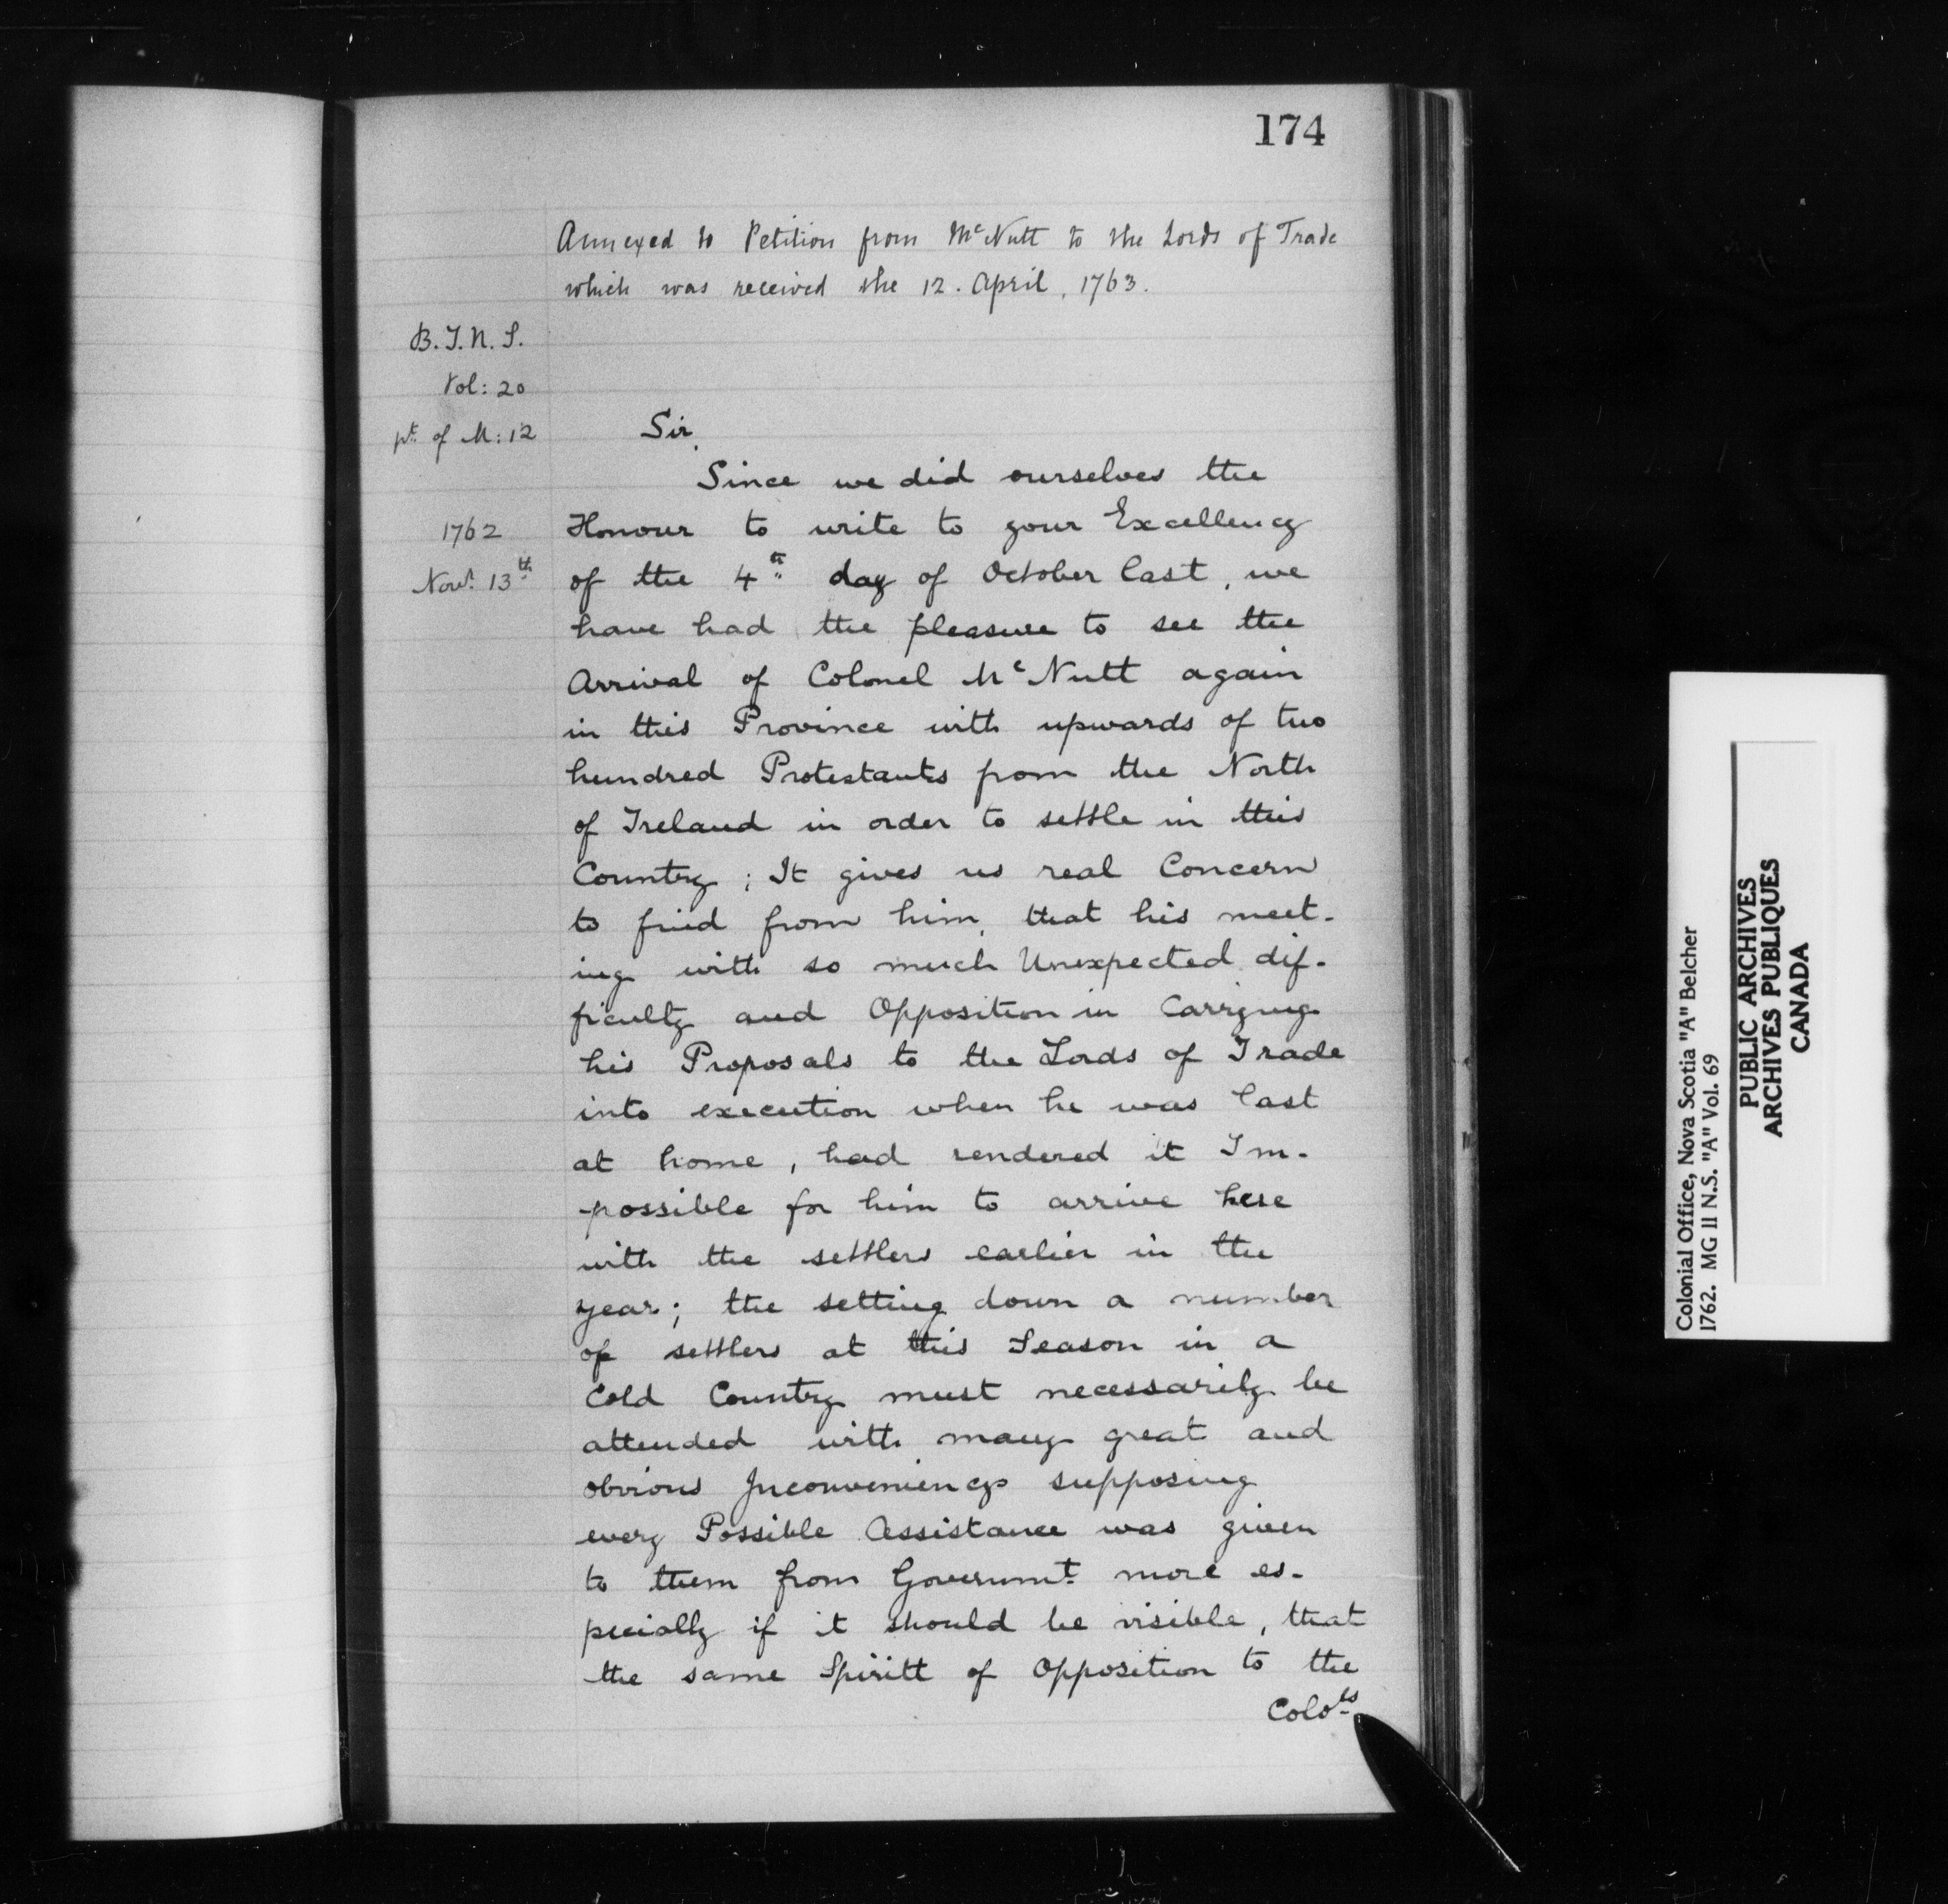 174
Annexed to Petition from McNutt to the Lords of Trade
which was received the 12. April, 1763.
B.T.N.S.
Vol: 20
pt. of M: 12
Sir,
Since we did ourselves the
1762
Honour to write to your Excellency
Novr. 13th
of the 4th day of October last, we
have had the pleasure to see the
Arrival of Colonel McNutt again
in this Province with upwards of two
hundred Protestants from the North
of Ireland in order to settle in this
Country; It gives us real Concern
to find from him, that his meet-
ing with so much Unexpected dif-
ficulty and Opposition in Carrying
his Proposals to the Lords of Trade
into execution when he was last
at home, had rendered it Im-
-possible for him to arrive here
with the settlers earlier in the
year; the setting down a number
of settlers at this Season in a
Cold Country must necessarily be
attended with many great and
obvious Inconveniencys supposing
every Possible Assistance was given
to them from Governmt. more es-
pecially if it should be visible, that
the same Spiritt of Opposition to the
Colols
Colonial Office, Nova Scotia "A" Belcher
1762. MG 11 N.S. "A" Vol. 69
PUBLIC ARCHIVES
ARCHIVES PUBLIQUES
CANADA